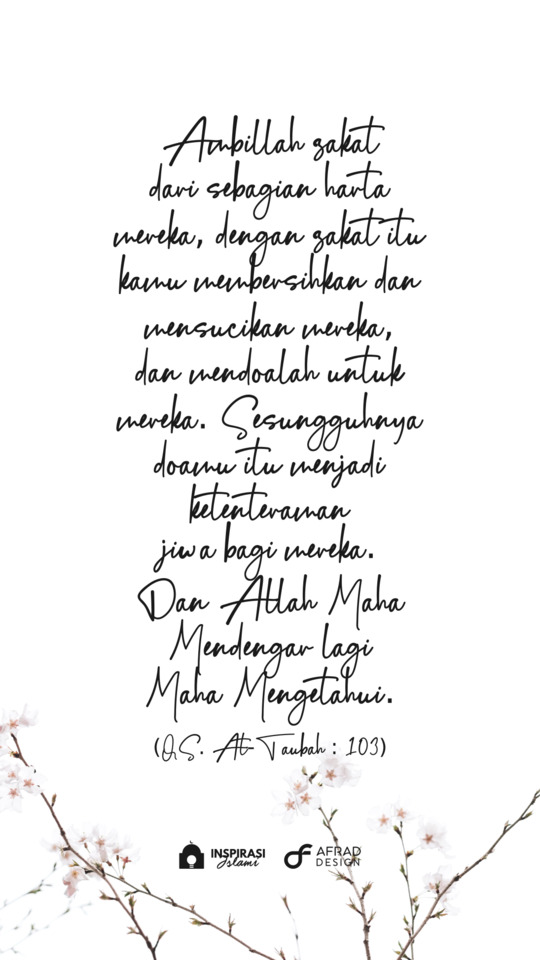 Ambillah zakat
dari sebagian harta
mereka, dengan zakat itu
kamu membersihkan dan
mensucikan mereka,
dan mendoalah untuk
mereka. Sesungguhnya
doamu itu menjadi
ketenteraman
jiwa bagi mereka.
Dan Allah Maha
Mendengar lagi
Maha Mengetahui.
(Q.S. At-Taubah : 103)
INSPIRASI
Islami
AFRAD
DESIGN